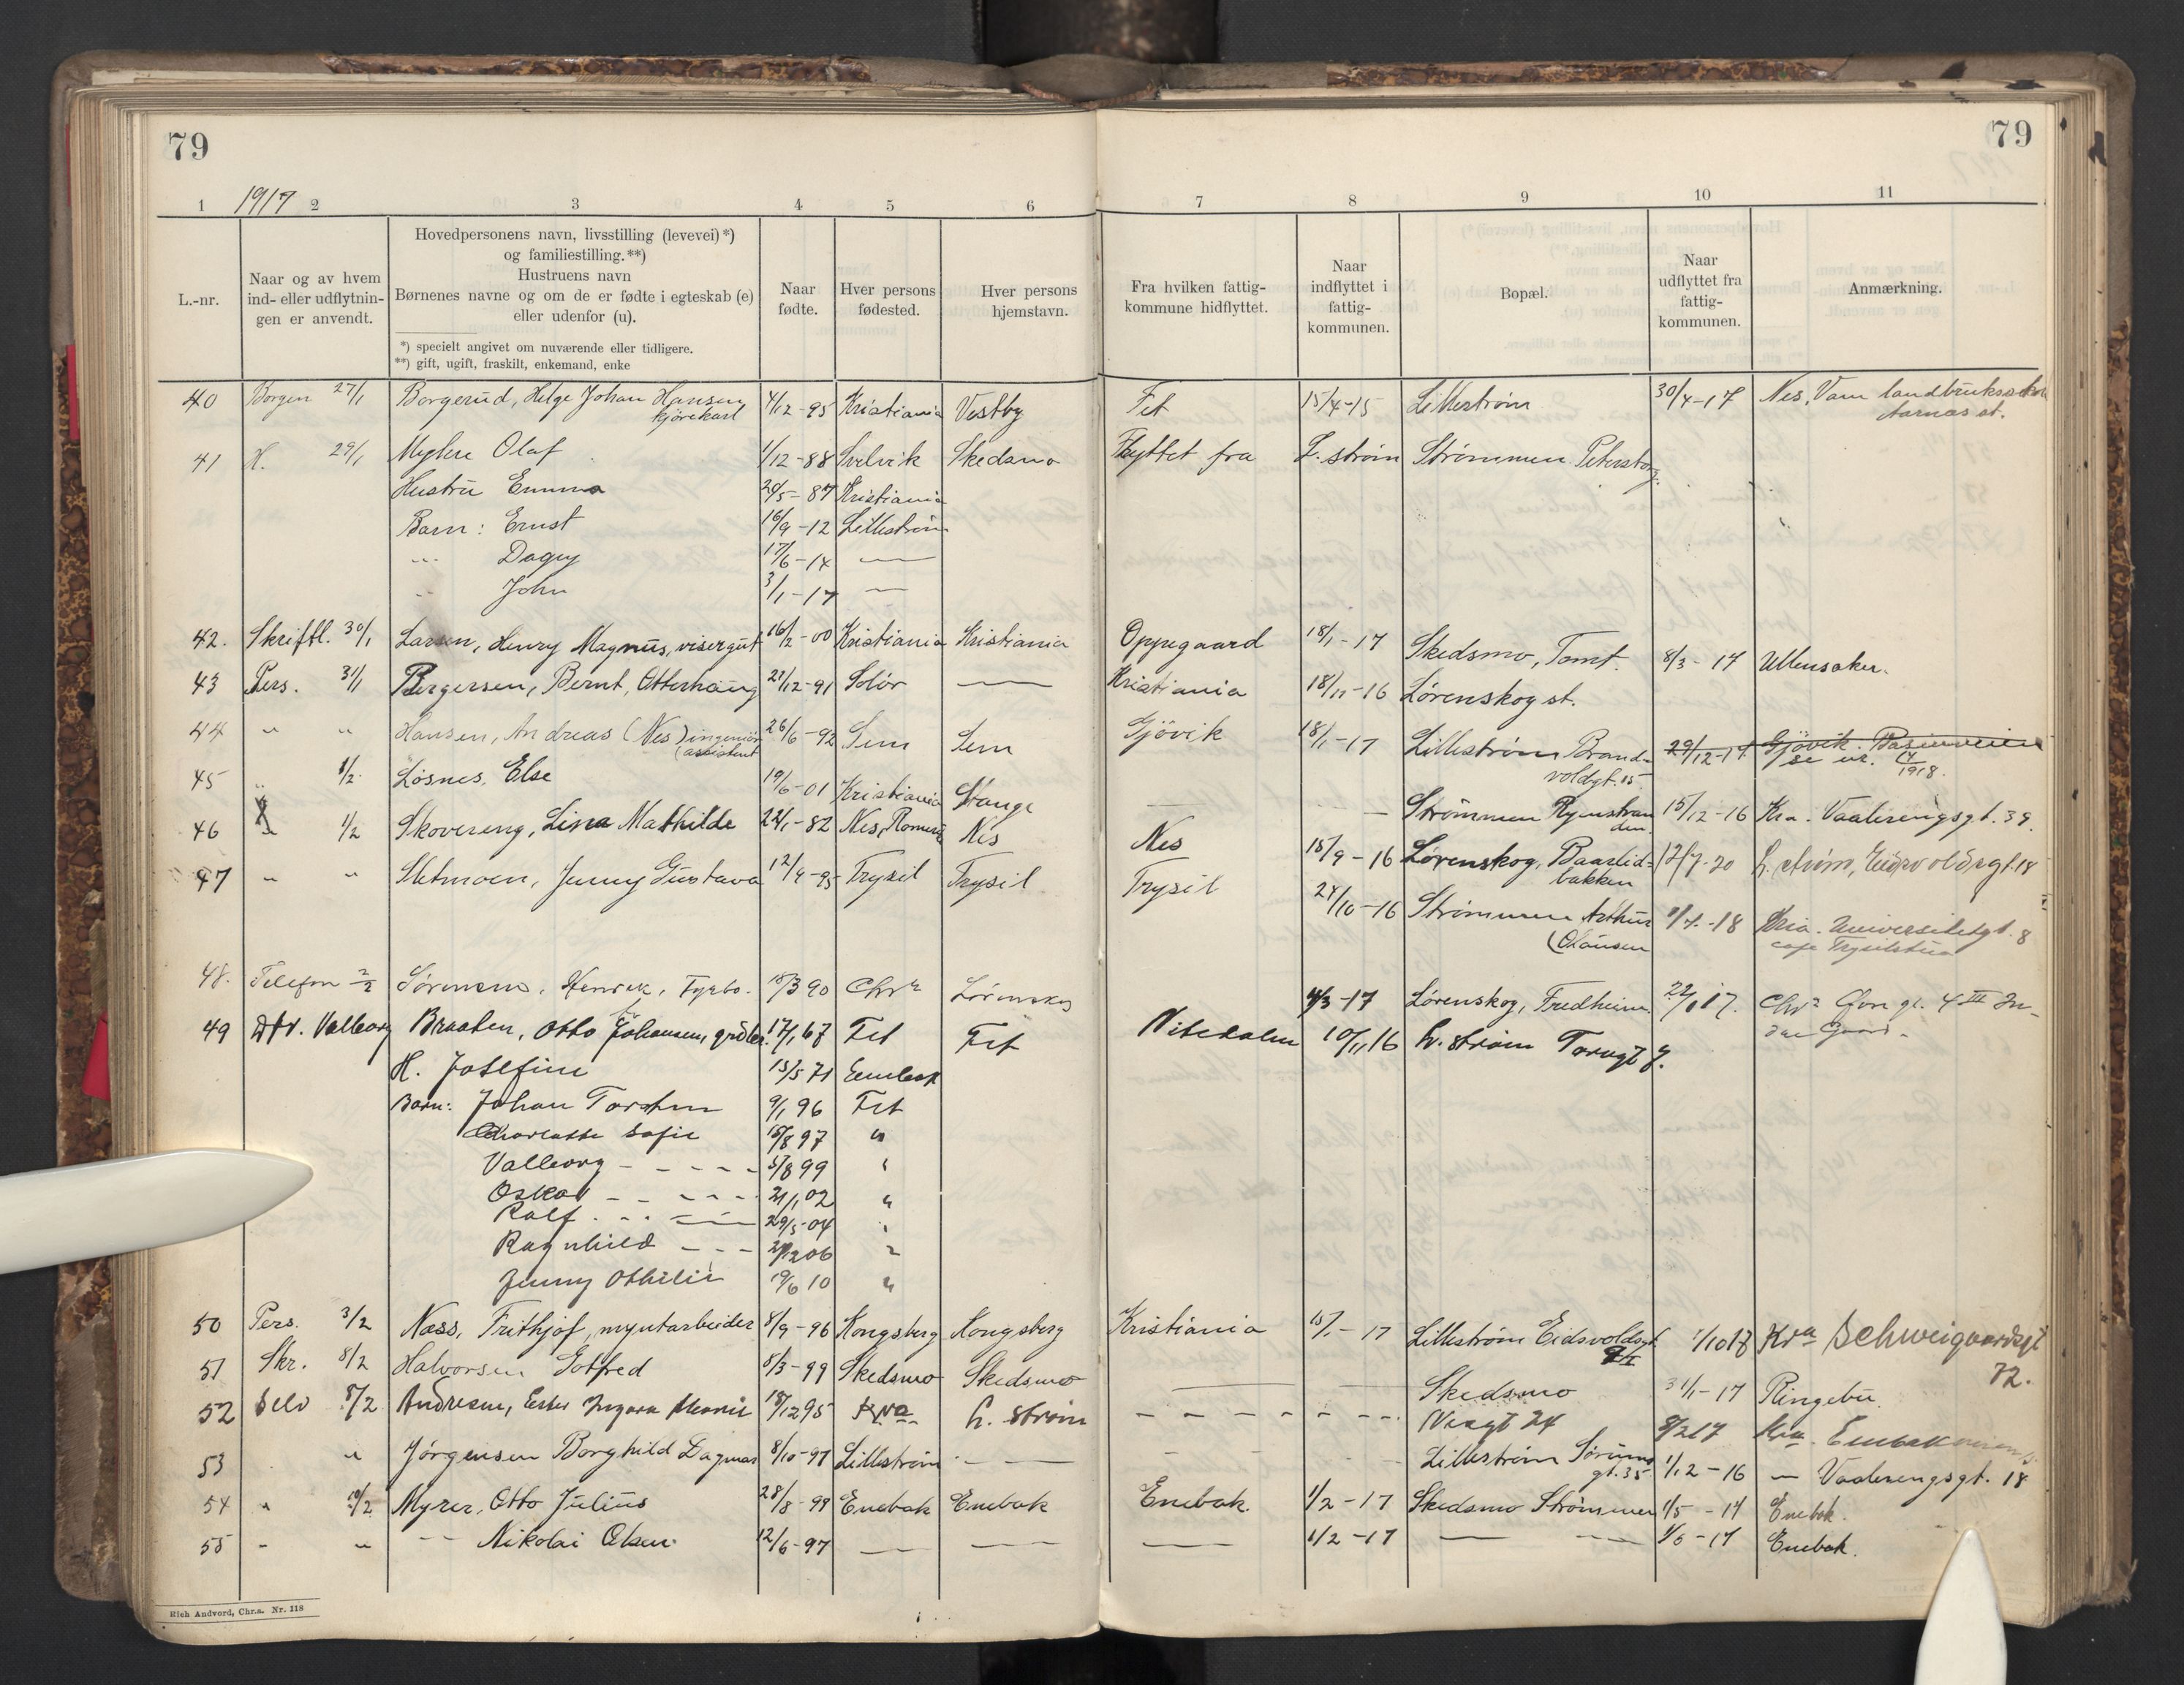 79
79
1917
1 2 3 4 5 6 7 8 9 10 11
L.-nr.
Naar og av hvem ind- eller udflytningen er anvendt.
Hovedpersonens navn, livsstilling (levevei)*)
og familiestilling.**)
Hustruens navn
Børnenes navne og om de er fødte i egteskab (e)
eller udenfor (u).
*) specielt angivet om nuværende eller tidligere.
**) gift, ugift, fraskilt, enkemand, enke
Naar fødte.
Hver persons fødested.
Hver persons hjemstavn.
Fra hvilken fattig-kommune hidflyttet.
Naar indflyttet i fattig-kommunen.
Bopæl.
Naar udflyttet fra fattig-kommunen.
Anmærkning.
40 Borgen 27/1 Borgerud, Helge Johan Hansen 4/12-95 Kristiania Vestby Fet 15/4-15 Lillestrøm 30/4-17 Nes, Vam landbruksskole
kjørekarl Aarnas st.
41 H. 29/1 Myhre Olaf 1/12-88 Svelvik Skedsmo Flyttet fra L. strøm Strømmen Petersborg.
Hustru Emma 20/5-87 Kristiania
Barn: Ernst 16/9-12 Lillestrøm
... Dagny 17/6-14 —
.. John 3/1-17 —
42. Skriftl. 30/1 Larsen, Henry Magnus, visergut 16/2-00 Kristiania Kristiania Oppegaard 18/1-17 Skedsmo, Tomt. 8/3-17 Ullensaker.
43 Pers. 31/1 Bergersen, Bernt, Otterhaug 21/12-91 Solör — Kristiania 18/11-16 Lørenskog st.
44 " " Hansen, Andreas (Nes) ingeniør 26/6-92 Sem Sem Gjövik 18/1-17 Lillestrøm Brand- 29/12-17 Gjövik.
(assistent voldgt. 15 se nr. 1918.
45 " 1/2 Løsnes, Else 19/6-01 Kristiania Stange — — Strømmen Rynstran 15/12-16 Kra. Vaalerengsgt. 39.
den.
46 " 1/2 Skovereng, Lina Mathilde 22/1-82 Nes, Romerik Nes Nes 15/9-16 Lørenskog, Baarlid- 12/7-20 L. strøm, Eidsvoldsgt. 18
bakken
47 " " Sletmoen, Jenny Gustava 12/4-95 Trysil Trysil Trysil 24/10-16 Strømmen Arthur 1/4-18 Kria. Universitetsgt. 8
(Clausen cafe Trysilstua
48. Telefon 2/2 Sørensen, Henrik, Fyrbo. 18/3 90 Chra Lörenskog 4/3-17 Lørenskog, Fredheim. 22/6 17.
49 Dtr. Valborg Braaten, Otto Johansen, gröfter. 17/1 67 Fet Fet Nitedalen 10/11 16 L. strøm Torvgt 7.
H. Josefine 13/5 71 Enebak
Barn: Johan Torsten 9/1 96 Fet
Charlotte Sofie 15/8 97 "
Valborg - - - - - 5/8 99 "
Oskar - - - - - 21/1 02 "
Ralf . . . — 29/5-04 "
Ragnhild - - - 06 "
Jenny Othilie 19/6 10 "
50 Pers. 3/2 Næss, Frithjof, myntarbeider 8/9-96 Kongsberg Kongsberg Kristiania 15/1-17 Lillestrøm Eidsvoldsgt. 1/10 17 Kra Schweigaardsgt
72.
51 Skr. 8/2 Halvorsen Gotfred 8/3-99 Skedsmo Skedsmo — — Skedsmo 31/1-17 Ringebu.
52 Selv 8/2 Andresen, Ester Ingara 18/12 95 Kra L. strøm - - - - - - - 24 8/2 17 Kra. Enebakveien
53 " Jørgensen Borghild Dagmar 8/10-97 Lillestrøm — - - Lillestrøm Sørums 1/12-16 — Vaalerengsgt. 18
gt. 35
54 " 10/2 Myrer, Otto Julius 28/8-99 Enebak Enebak Enebak. 1/2-17 Skedsmo Strømmen 1/5-17 Enebak.
55 - " -- Nikolai Olsen. 12/6-97 — — — 1/2-17 — — 1/5-17 Enebak.
Rich Andvord, Chr.a. Nr. 118